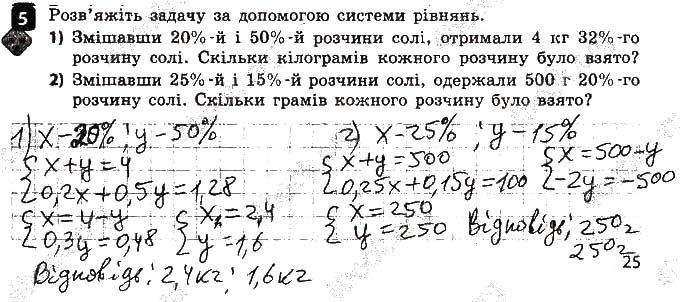 5 Розв'яжіть задачу за допомогою системи рівнянь.
1) Змішавши 20%-й і 50%-й розчини солі, отримали 4 кг 32%-го
розчину солі. Скільки кілограмів кожного розчину було взято?
2) Змішавши 25%-й і 15%-й розчини солі, одержали 500 г 20%-го
розчину солі. Скільки грамів кожного розчину було взято?
1) x-20%; y-50%
{ x+y=4
{ 0,2x+0,5y=1,28
{ x=4-y
{ 0,3y=0,48
{ x=2,4
{ y=1,6
Відповідь: 2,4кг; 1,6кг
2) x-25%; y=15%
{ x+y=500
{ 0,25x+0,15y=100
{ x=500-y
{ -2y=-500
{ x=250
{ y=250
Відповідь: 250г
250г
25